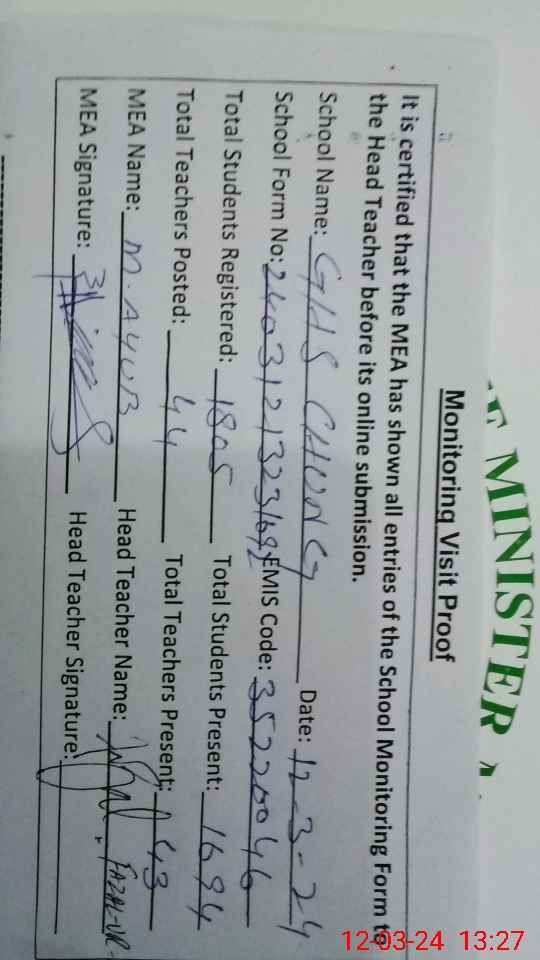 E MINISTER
Monitoring Visit Proof
It is certified that the MEA has shown all entries of the School Monitoring Form to
the Head Teacher before its online submission.
School Name: GHS CHUNG Date: 12-3-24
School Form No: EMIS Code: 35220046
Total Students Registered: 1805 Total Students Present: 1694
Total Teachers Posted: 44 Total Teachers Present: 43
MEA Name: M. AYUB Head Teacher Name: FAZAL-UR-
MEA Signature: Head Teacher Signature:
12-03-24 13:27